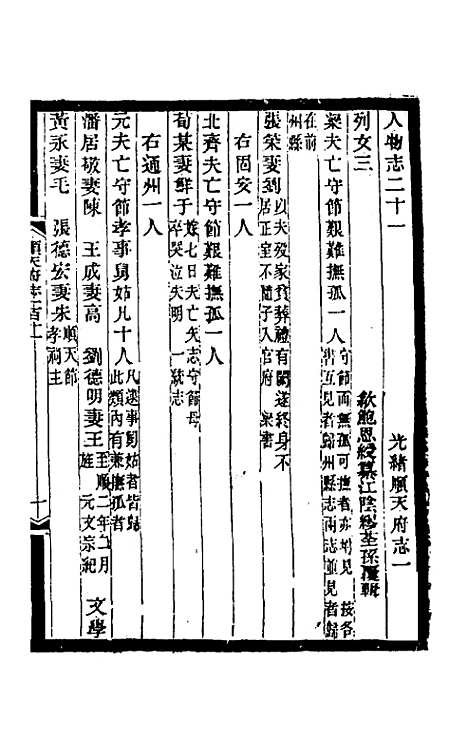 人物志二十一　光緒順天府志一
歙鮑恩綬纂江陰繆荃孫覆輯
列女三
梁夫亡守節艱難撫孤一人守節而無孤可撫者亦坿見 按各
書互見者歸州縣志兩志並見者歸
在前
州縣
張棻妻劉以夫歿家貧葬禮有闕遂終身不
居正室不隨子入官府 梁書
右固安一人
北齊夫亡守節艱難撫孤一人
荀某妻鮮于嫁七日夫亡矢志守節母
卒哭泣失明 一統志
右通州一人
元夫亡守節孝事舅姑凡十人凡逮事舅姑者皆歸
此類內有兼撫孤者
潘居敬妻陳　王成妻高　劉德明妻王至順二年二月
旌 元文宗紀　文學
黃永妻毛　張德宏妻朱順天節
孝祠主
順天府志一百十一
一